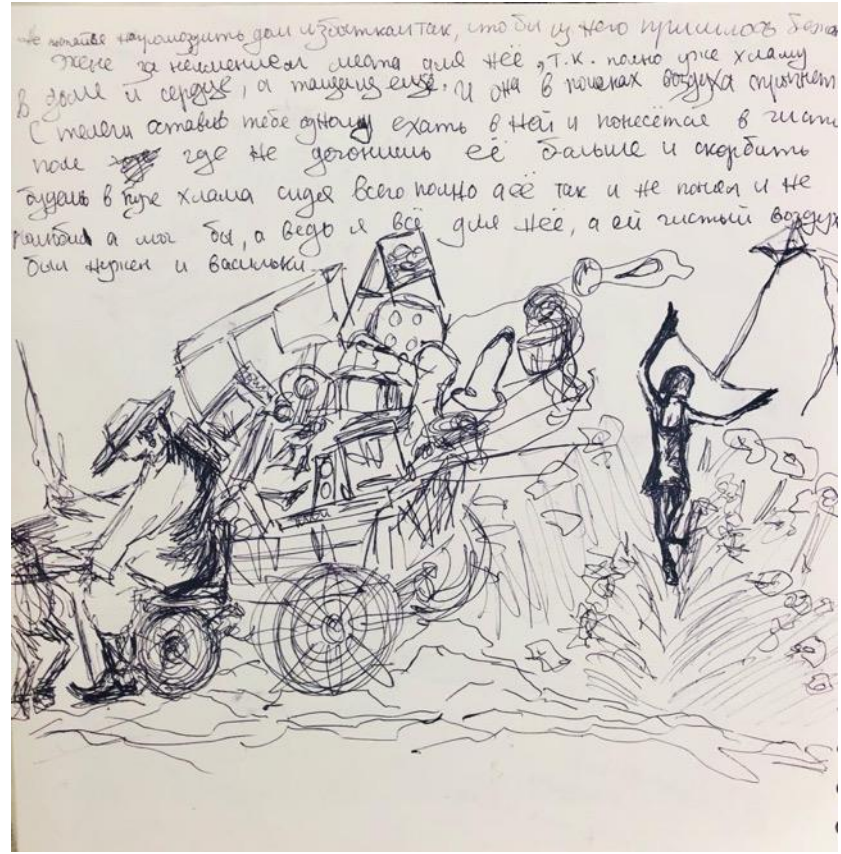 Не пытайся нагромоздить дом избытком так, чтобы из него пришлось бежа
Жене за неимением места для неё, т.к. полно уже хламу
В доме и сердце, а тащишь ещё. И она в поисках воздуха спрыгнет
С телеги оставив тебе одному ехать в ней и понесётся в чисто
поле где не догонишь её больше и скорбить
будешь в куче хлама сидя всего полно а её так и не понял и не
полюбил а мог бы, а ведь я всё для неё, а ей чистый воздух
был нужен и васильки